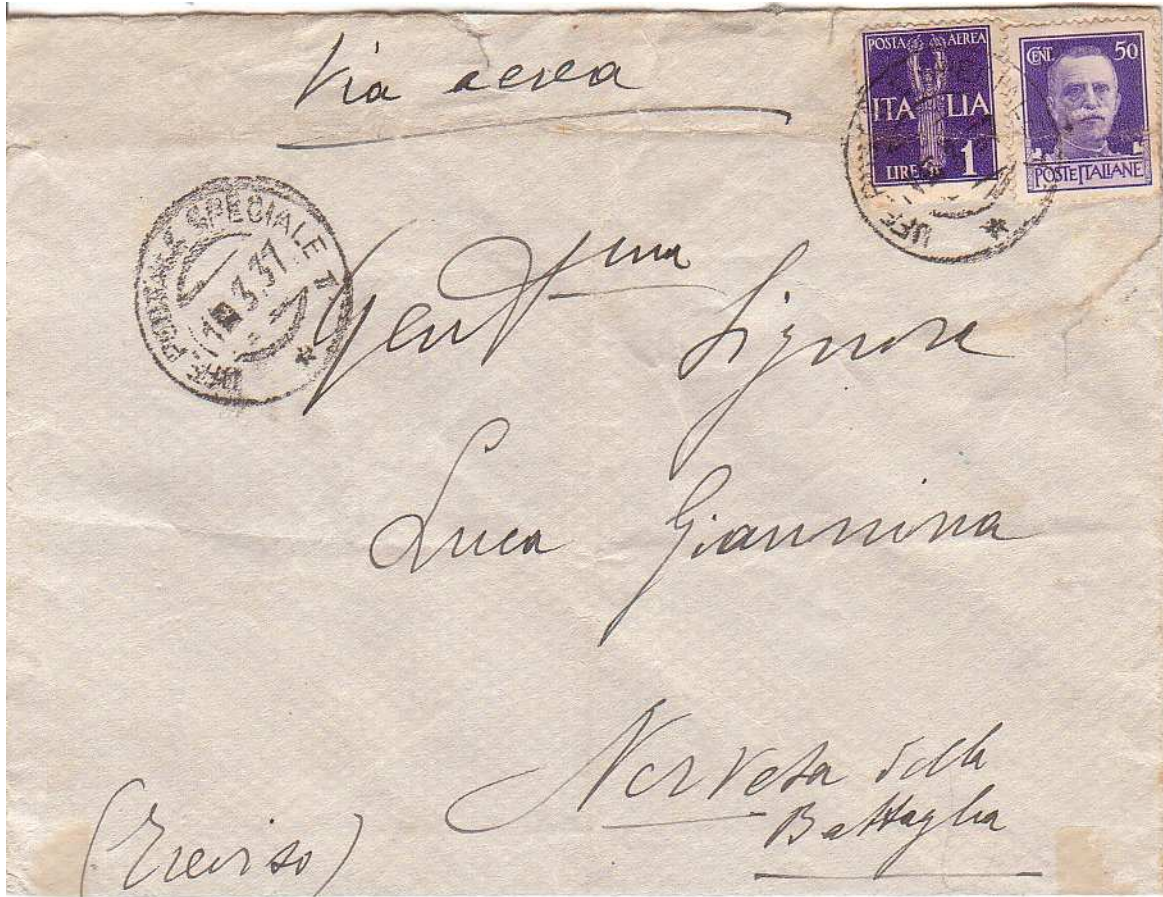 Via aerea
POSTA AEREA
ITALIA
LIRE 1
CENT. 50
POSTE ITALIANE
UFF. POSTALE SPECIALE 7
1 3.37
*
UFF
*
Gent ma Signora
Luca Giannina
Nervesa della
Battaglia
(Treviso)